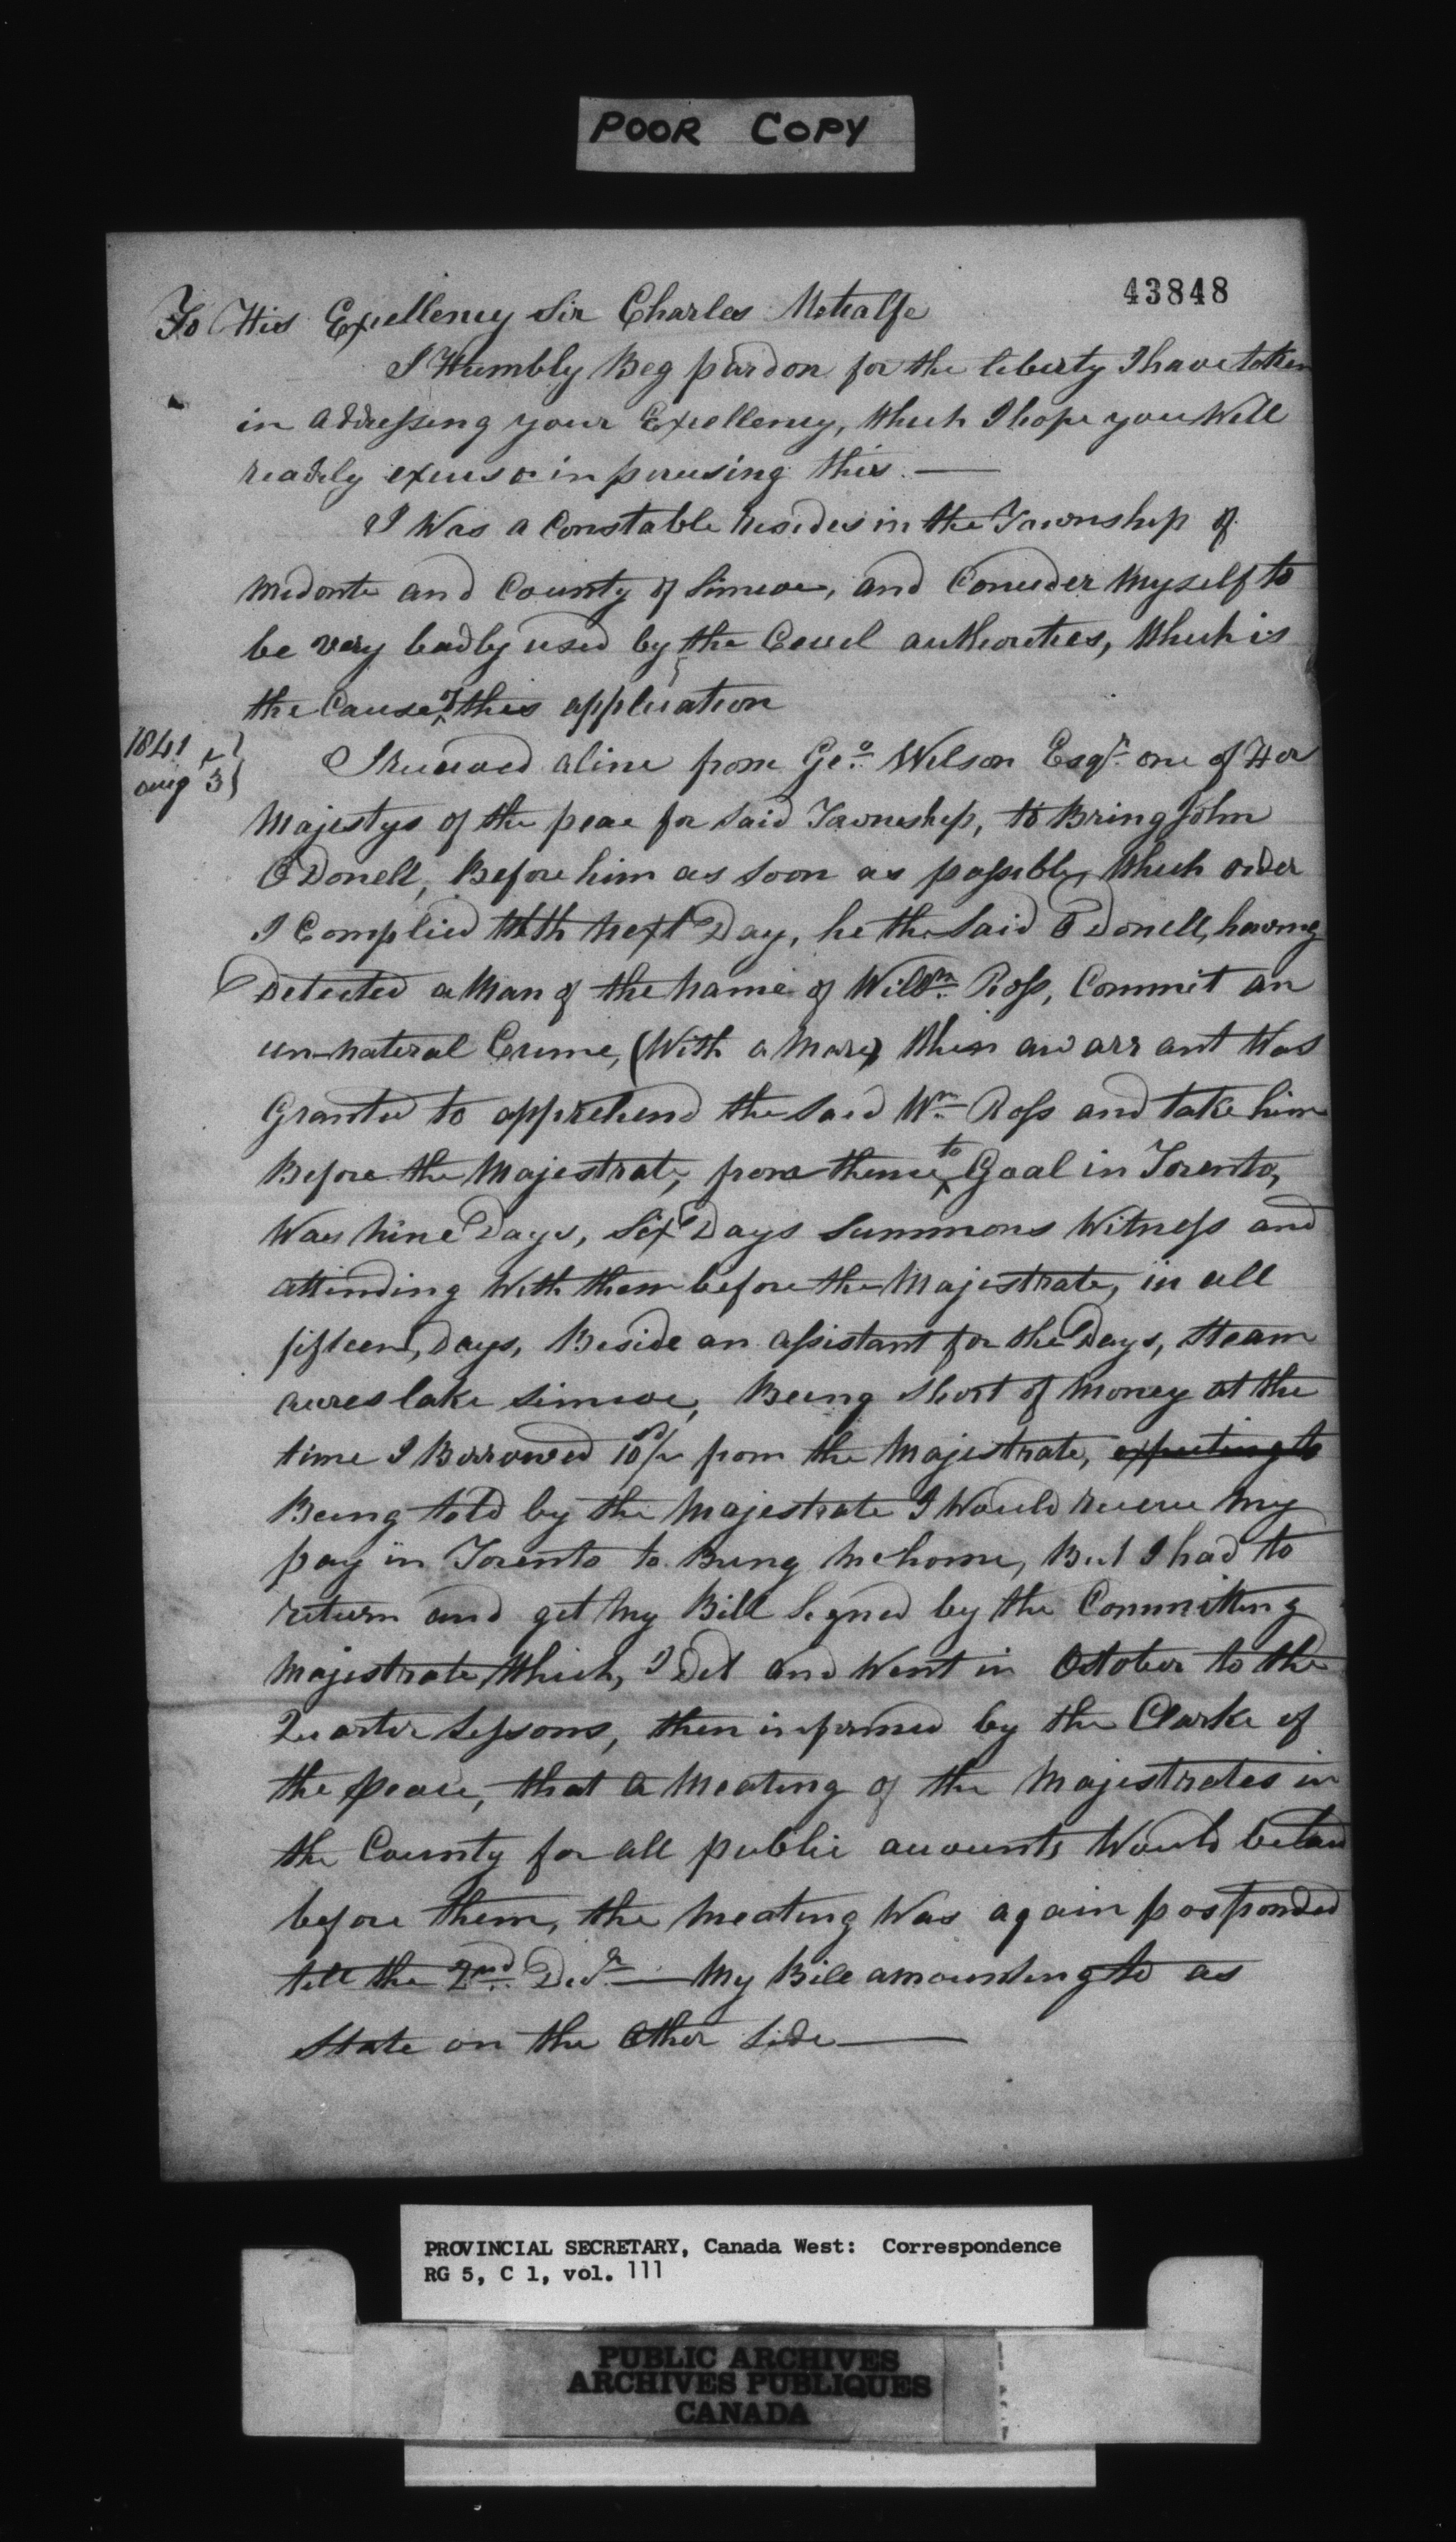 POOR COPY
43848
To His Exellency Sir Charles Metcalfe
I Humbly Beg pardon for the liberty I have taken
in addressing your Exellency, Which I hope you Will
readily excuse in perusing this. —
I Was a Constable resides in the Township of
Medonte and County of Simcoe, and Consider Myself to
be very badly used by the Cevel authorities, Which is
the Cause of this application
1841
aug 3
I received a line from Geo. Wilson Esqr. one of Her
Majestys of the peace for said Township, to Bring John
O Donell, Before him as soon as possible, Which order
I Complied With Next Day, he the Said O Donell, having
Detected a Man of the Name of Willm. Ross, Commit an
un-nateral Crime, (With a Mare) then a warrant Was
Granted to apprehend the Said Wm. Ross and take him
Before the Majestrate, from thence to Goal in Toronto,
Was Nine Days, Six Days Summons Witness and
attending With them before the Majestrate, in all
fifteen, Days, Beside an assistant for the Days, Steam
acres lake Simcoe, Being Short of Money at the
time I Borrowed 10/ from the Majestrate, expecting to
Being told by the Majestrate I Would receve My
pay in Toronto to Bring Me home, But I had to
return and get My Bill Signed by the Committing
Majestrate Which, I Did and Went in October to the
Quarter Sessons, then informed by the Clarke of
the peace, that a Meating of the Majestrates in
the County for all public accounts Would be laid
before them, the Meating Was again postponded
till the 2nd. Decr. — My Bill amounting to as
State on the Other Side —
PROVINCIAL SECRETARY, Canada West: Correspondence
RG 5, C 1, vol. 111
PUBLIC ARCHIVES
ARCHIVES PUBLIQUES
CANADA